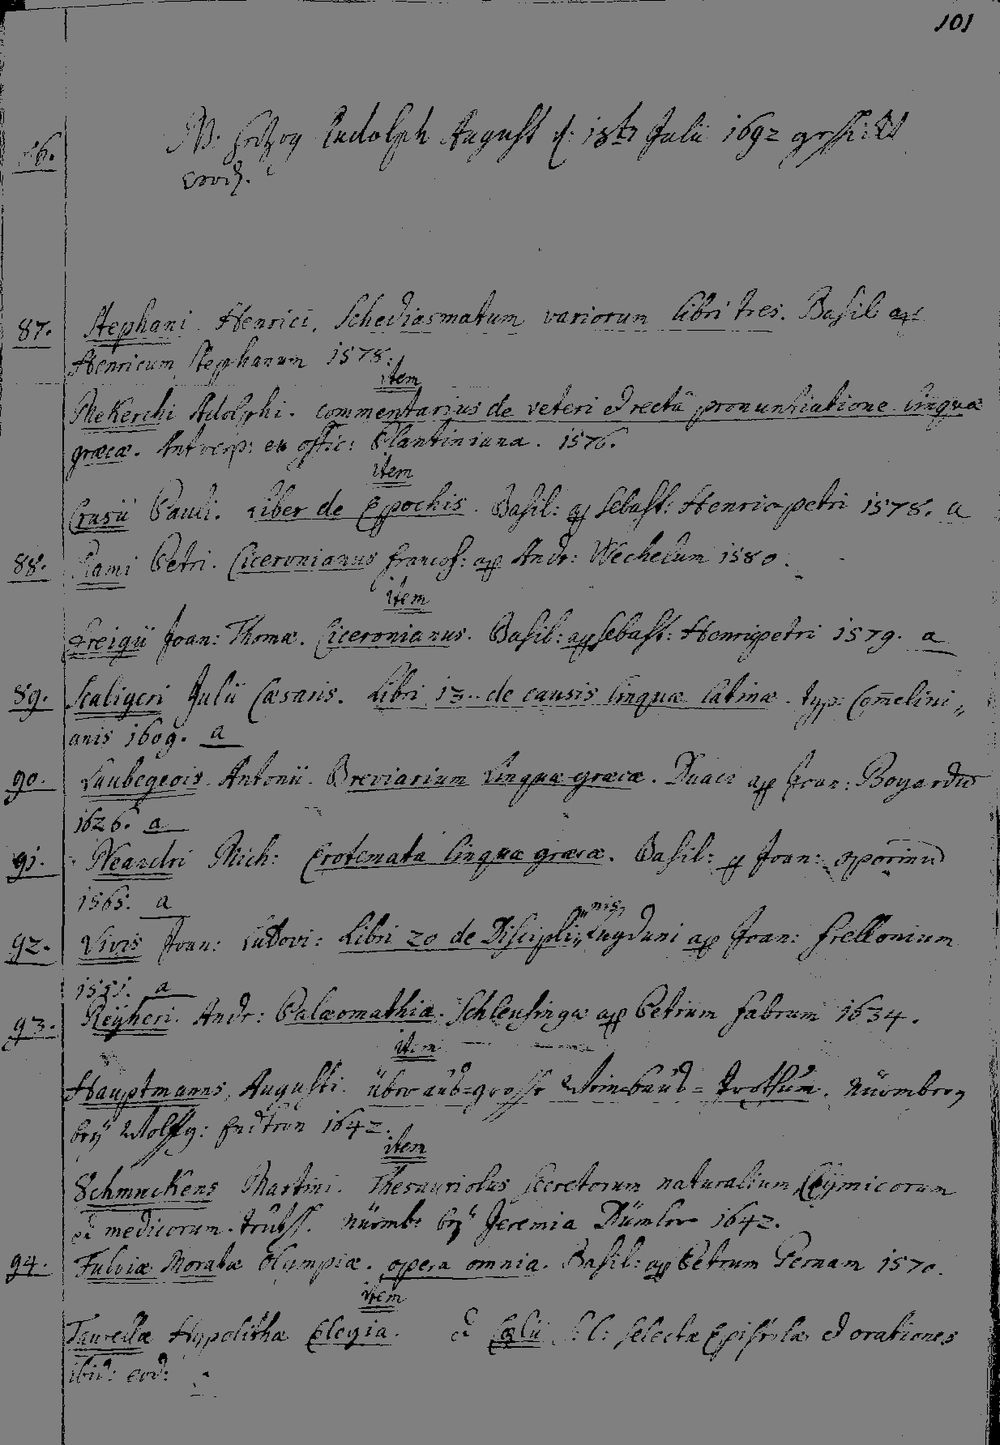 101
86. NB. Herzog Rudolph August d: 18t Julii 1692 geschickt
word.
87. Stephani Henrici. Schediasmatum variorum libri tres. Basil ap:
Henricum Stephanum 1578.
item
Mekerchi Adolphi. commentarius de veteri et rectâ pronuntiatione linguæ
græcæ. Antverp: ex offic: Plantiniana. 1576.
item
Crusii Pauli. Liber de Epochis. Basil: ap Sebast: Henricpetri 1578. a
88. Rami Petri. Ciceronianus francof: ap Andr: Wechelum 1580.
item
Freigii Joan: Thomæ. Ciceronianus. Basil: ap Sebast: Henricpetri 1579. a
89. Scaligeri Julii Cæsaris. Libri 13. de causis linguæ Latinæ. typ: Com̄elini„
anis 1609. a
90. Laubegeois Antonii. Breviarium Linguæ græcæ. Duaci ap Joan: Bogardū
1626. a
91. Neandri Mich: Erotemata linguæ græcæ. Basil: ap Joan: Oporinū
1565. a
92. Vivis Joan: Ludovi: Libri 20 de Discipli„nis, Lugduni ap Joan: frellonium
1551. a
93. Reyheri. Andr: Palæomathia. Schleusingæ ap Petrum fabrum 1634.
item
Hauptmanns, Augusti. über auß-grosse Weinbauß-. Nürmberg
bey Wolffg: Endtern 1642.
item
Schmuckens Martini. Thesauriolus secretorum naturalium, Chymicorum
et medicorum. teutsch. Nürmb: bey Jeremia Dümler 1642.
94. Fulviæ Moratæ Olympiæ. opera omnia. Basil: ap Petrum Pernam 1570.
item
Taurellæ Hypolithæ Elegia. et Cælii selectæ Epistolæ et orationes
ibid: eod: